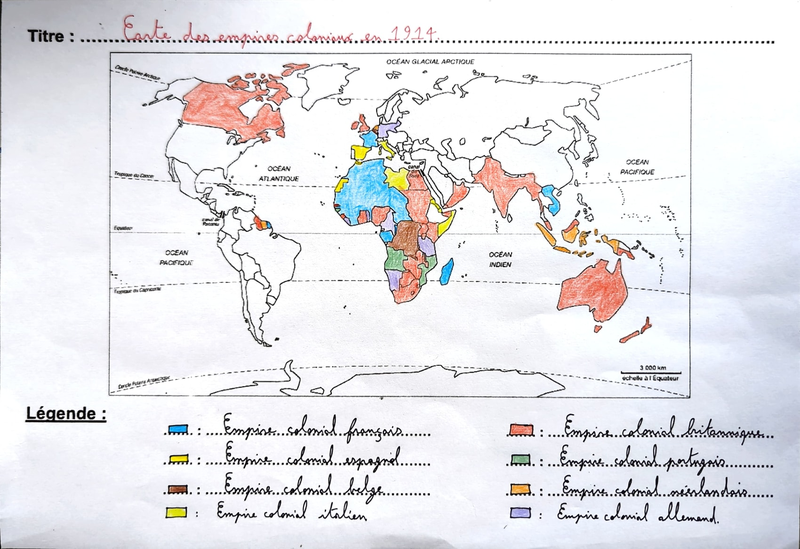 Titre : Carte des empires coloniaux en 1914.
OCÉAN GLACIAL ARCTIQUE
Cercle Polaire Arctique
OCÉAN PACIFIQUE
OCÉAN ATLANTIQUE
Tropique du Cancer
canal de Panama
Équateur
OCÉAN PACIFIQUE
OCÉAN INDIEN
Tropique du Capricorne
3 000 km
échelle à l'Équateur
Cercle Polaire Antarctique
Légende :
: Empire colonial français
: Empire colonial britannique
: Empire colonial espagnol
: Empire colonial portugais
: Empire colonial belge
: Empire colonial néerlandais
: Empire colonial italien
: Empire colonial allemand.